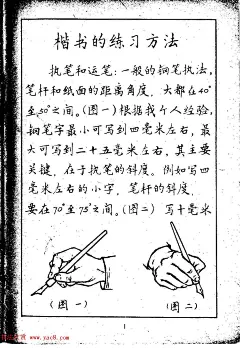 楷书的练习方法
执笔和运笔：一般的钢笔执法，
笔杆和纸面的距离角度，大都在40°
至50°之间。(图一)根据我个人经验，
钢笔字最小可写到四毫米左右，最
大可写到二十五毫米左右，其主要
关键，在于执笔的斜度。例如写四
毫米左右的小字，笔杆的斜度，
要在70°至75°之间。(图二) 写十毫米
(图 一)
(图 二)
1